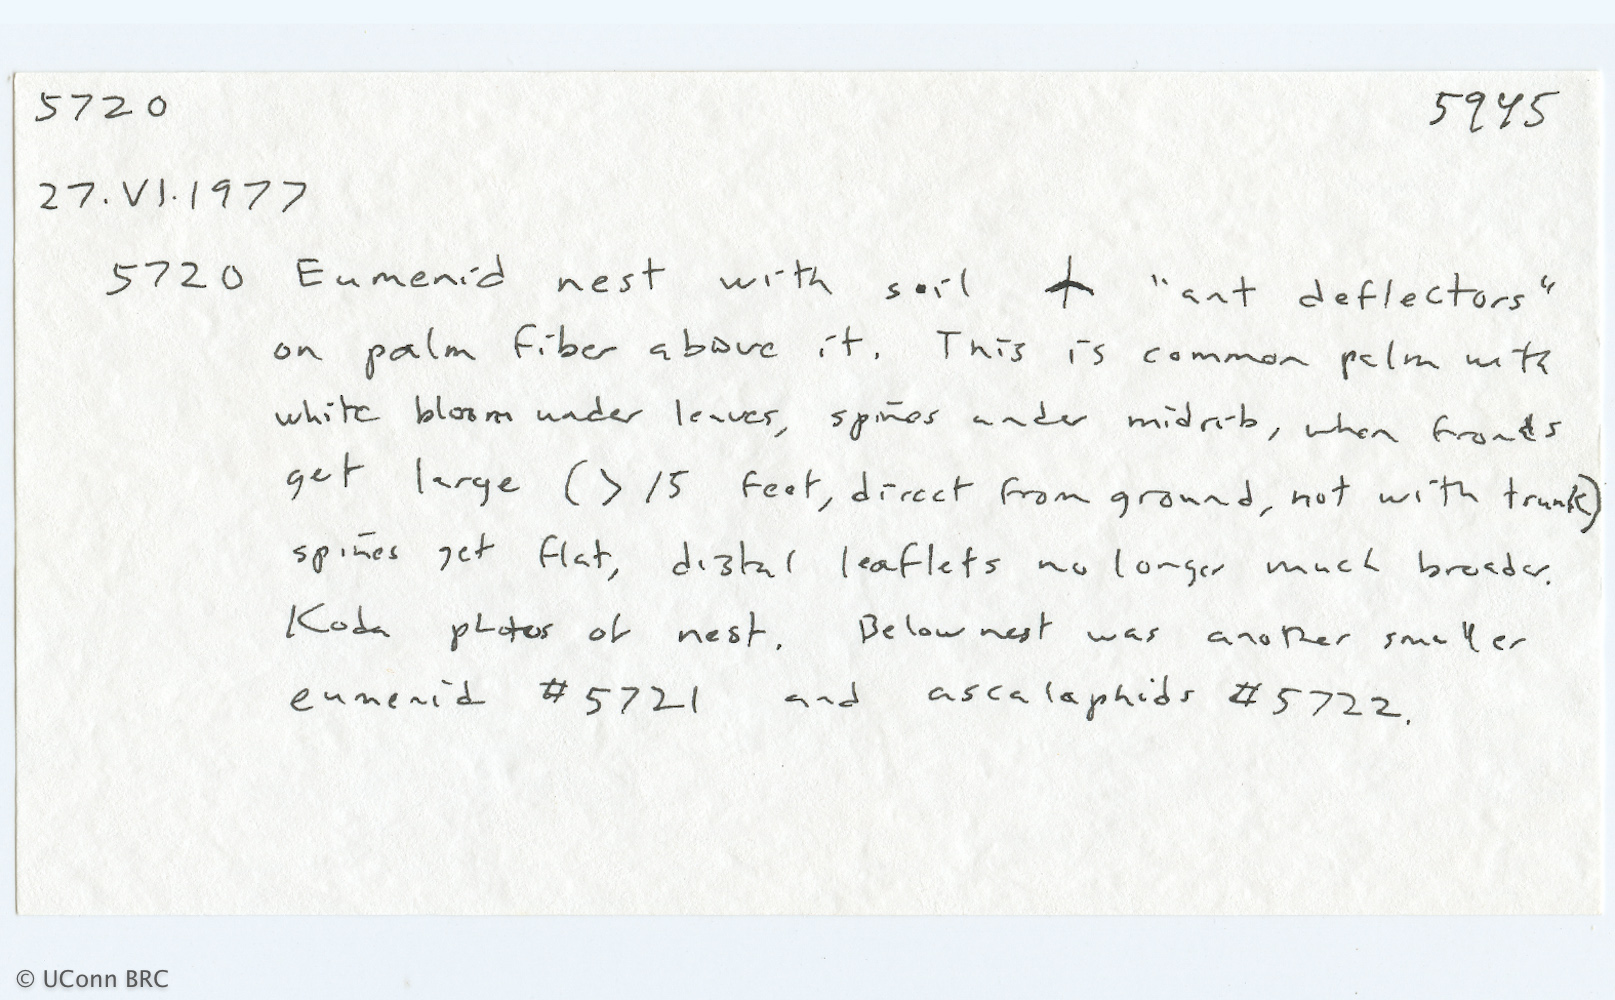 5720 5945
27.VI.1977
5720 Eumenid nest with soil + "ant deflectors"
on palm fiber above it. This is common palm with
white bloom under leaves, spines under midrib, when fronds
get large (> 15 feet, direct from ground, not with trunk)
spines get flat, distal leaflets no longer much broader.
Koda photos of nest. Below nest was another smaller
eumenid #5721 and ascalaphids #5722.
© UConn BRC